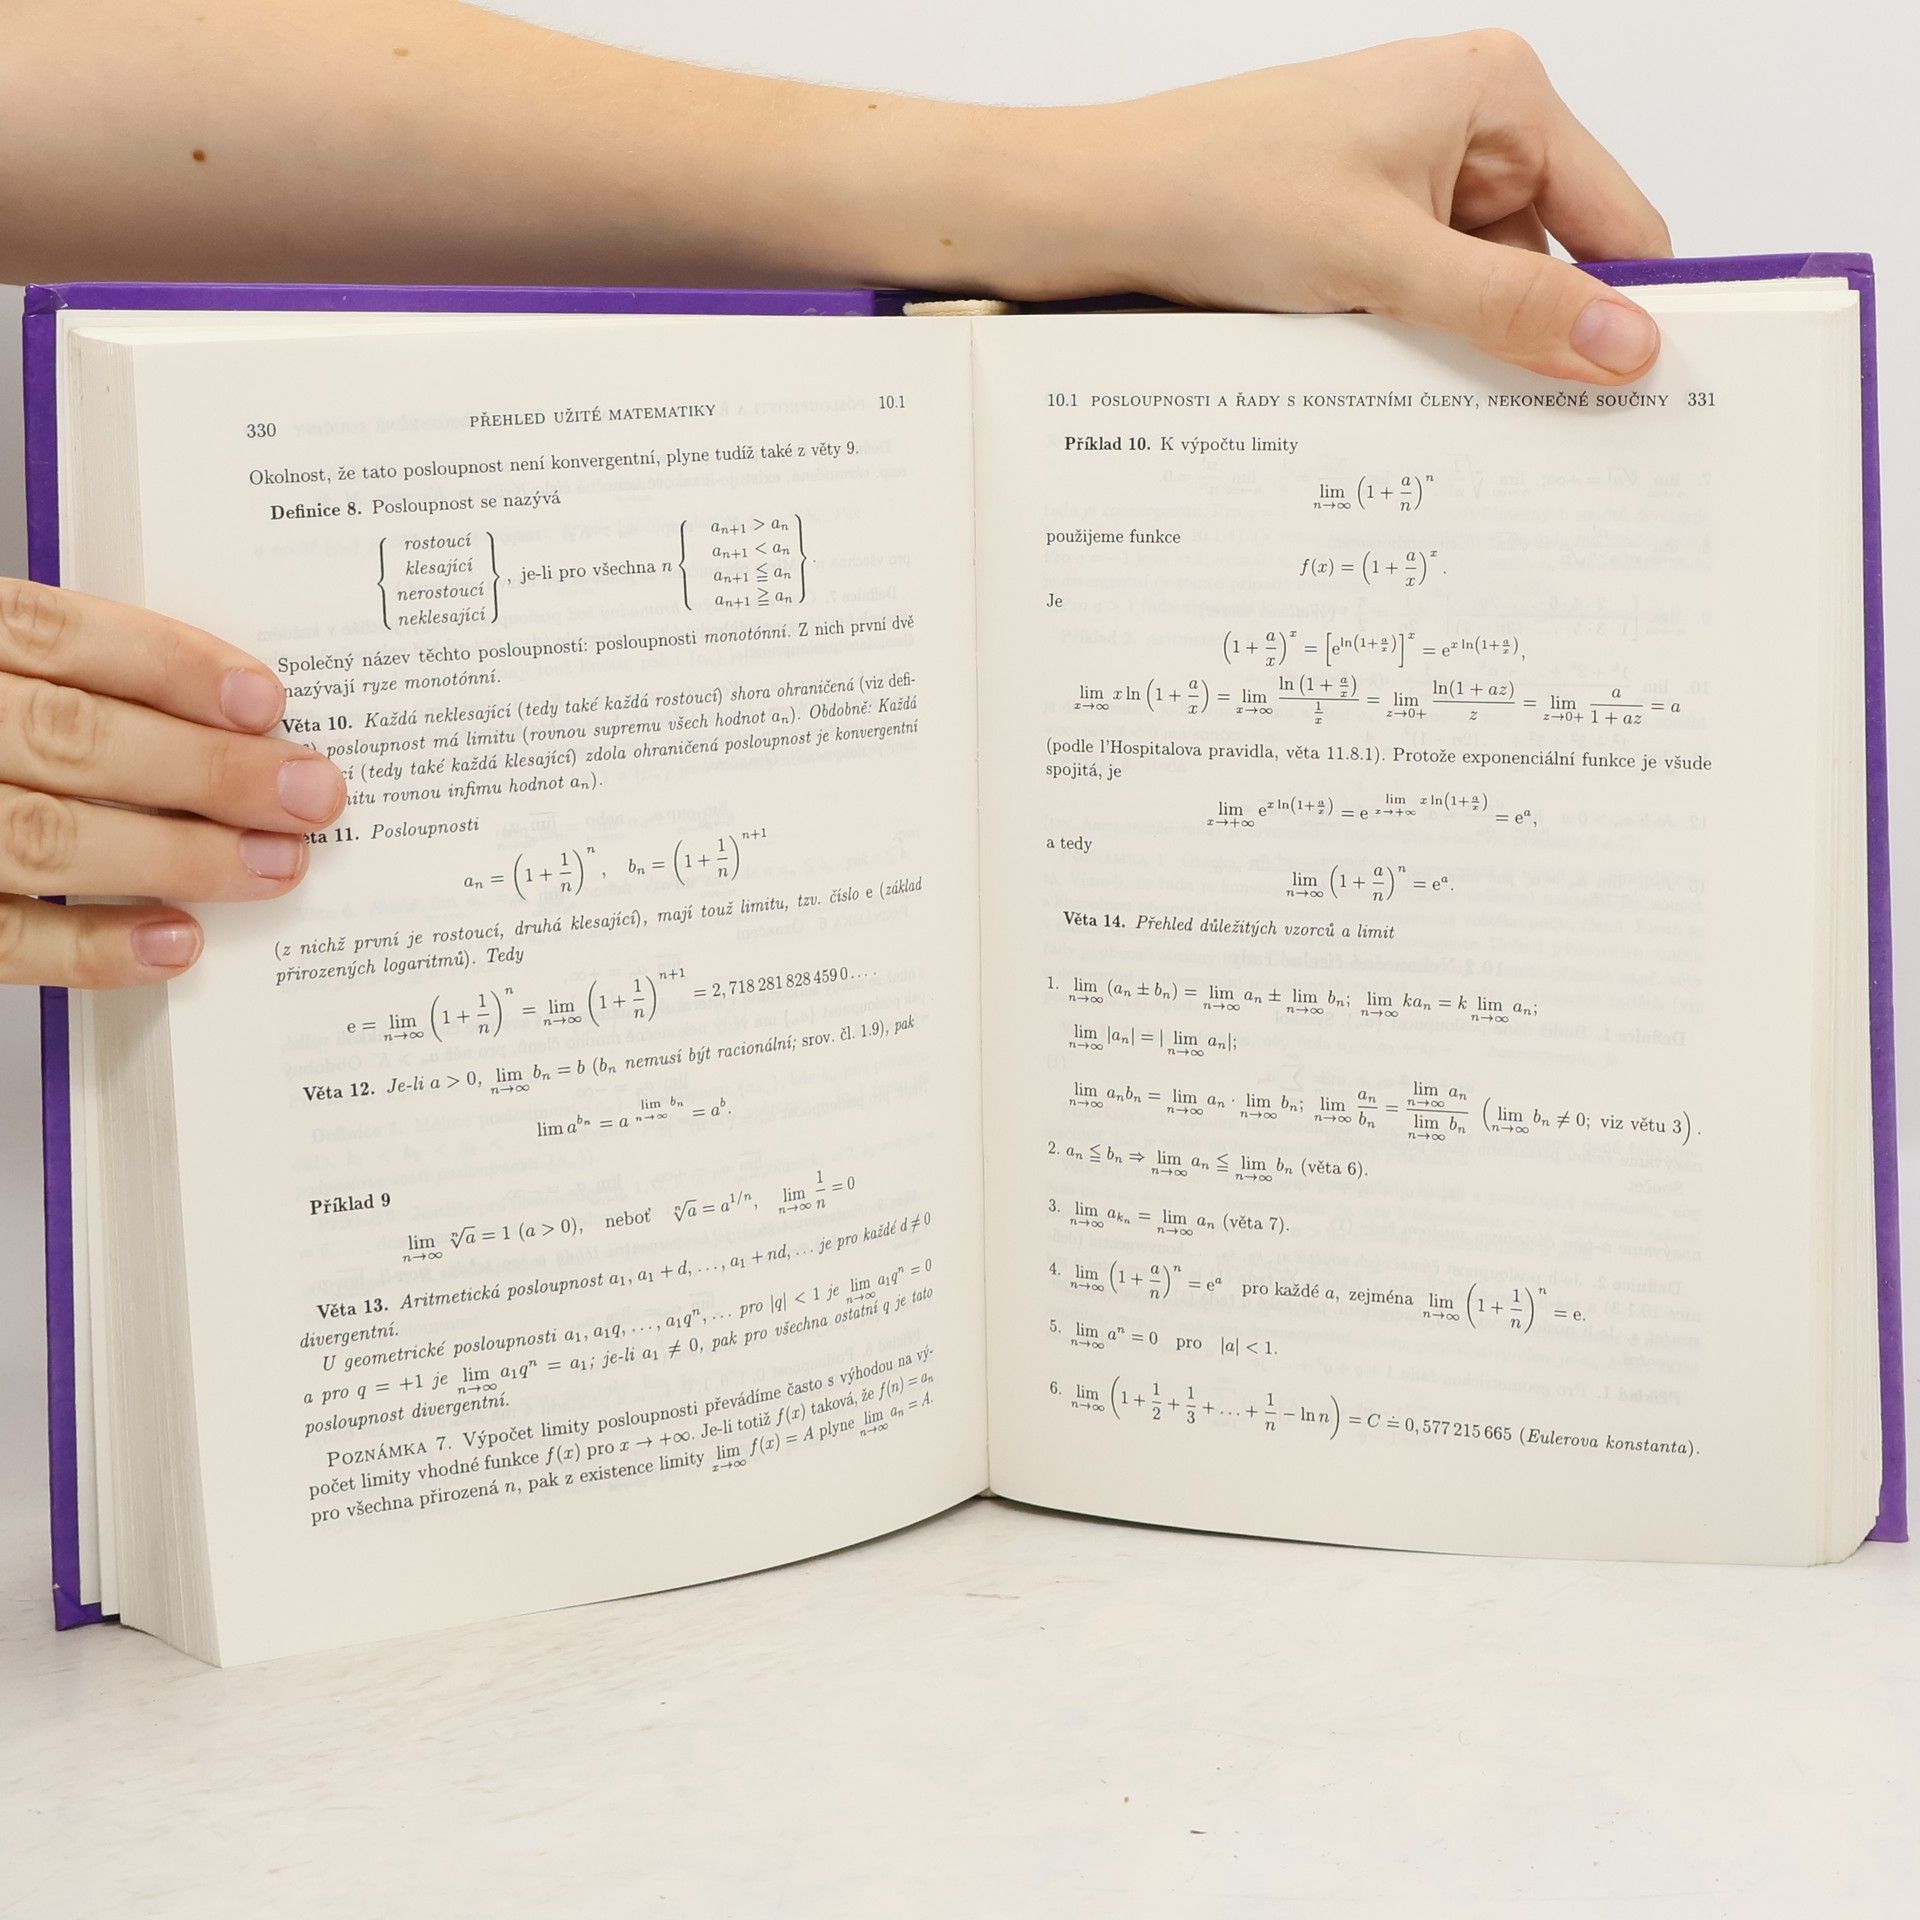 330 PŘEHLED UŽITÉ MATEMATIKY 10.1
Okolnost, že tato posloupnost není konvergentní, plyne tudíž také z věty 9.
Definice 8. Posloupnost se nazývá
{ rostoucí klesající nerostoucí neklesající } , je-li pro všechna n { aₙ₊₁ > aₙ aₙ₊₁ < aₙ aₙ₊₁ ≦ aₙ aₙ₊₁ ≧ aₙ } .
Společný název těchto posloupností: posloupnosti monotónní. Z nich první dvě
nazývají ryze monotónní.
Věta 10. Každá neklesající (tedy také každá rostoucí) shora ohraničená (viz defi-
posloupnost má limitu (rovnou supremu všech hodnot aₙ). Obdobně: Každá
(tedy také každá klesající) zdola ohraničená posloupnost je konvergentní
rovnou infimu hodnot aₙ).
11. Posloupnosti
aₙ = (1 + 1/n)^n , bₙ = (1 + 1/n)^(n+1)
(z nichž první je rostoucí, druhá klesající), mají touž limitu, tzv. číslo e (základ
přirozených logaritmů). Tedy
e = lim_{n→∞} (1 + 1/n)^n = lim_{n→∞} (1 + 1/n)^(n+1) = 2,718 281 828 459 0 . . . .
Věta 12. Je-li a > 0, lim_{n→∞} bₙ = b (bₙ nemusí být racionální; srov. čl. 1.9), pak
lim a^(bₙ) = a^(lim_{n→∞} bₙ) = a^b.
Příklad 9
lim_{n→∞} ⁿ√a = 1 (a > 0), neboť ⁿ√a = a^(1/n), lim_{n→∞} 1/n = 0
Věta 13. Aritmetická posloupnost a₁, a₁ + d, . . . , a₁ + nd, . . . je pro každé d ≠ 0
divergentní.
U geometrické posloupnosti a₁, a₁q, . . . , a₁q^n, . . . pro |q| < 1 je lim_{n→∞} a₁q^n = 0
a pro q = +1 je lim_{n→∞} a₁q^n = a₁; je-li a₁ ≠ 0, pak pro všechna ostatní q je tato
posloupnost divergentní.
POZNÁMKA 7. Výpočet limity posloupnosti převádíme často s výhodou na vý-
počet limity vhodné funkce f(x) pro x → +∞. Je-li totiž f(x) taková, že f(n) = aₙ
pro všechna přirozená n, pak z existence limity lim_{x→∞} f(x) = A plyne lim_{n→∞} aₙ = A.
10.1 POSLOUPNOSTI A ŘADY S KONSTATNÍMI ČLENY, NEKONEČNÉ SOUČINY 331
Příklad 10. K výpočtu limity
lim_{n→∞} (1 + a/n)^n
použijeme funkce
f(x) = (1 + a/x)^x .
Je
(1 + a/x)^x = [e^(ln(1+a/x))]^x = e^(x ln(1+a/x)),
lim_{x→∞} x ln (1 + a/x) = lim_{x→∞} ln (1 + a/x) / (1/x) = lim_{z→0+} ln(1 + az)/z = lim_{z→0+} a/(1 + az) = a
(podle l'Hospitalova pravidla, věta 11.8.1). Protože exponenciální funkce je všude
spojitá, je
lim_{x→+∞} e^(x ln(1+a/x)) = e^(lim_{x→+∞} x ln(1+a/x)) = e^a,
a tedy
lim_{n→∞} (1 + a/n)^n = e^a.
Věta 14. Přehled důležitých vzorců a limit
1. lim_{n→∞} (aₙ ± bₙ) = lim_{n→∞} aₙ ± lim_{n→∞} bₙ; lim_{n→∞} kaₙ = k lim_{n→∞} aₙ;
lim_{n→∞} |aₙ| = | lim_{n→∞} aₙ|;
lim_{n→∞} aₙbₙ = lim_{n→∞} aₙ · lim_{n→∞} bₙ; lim_{n→∞} aₙ/bₙ = lim_{n→∞} aₙ / lim_{n→∞} bₙ (lim_{n→∞} bₙ ≠ 0; viz větu 3) .
2. aₙ ≦ bₙ ⇒ lim_{n→∞} aₙ ≦ lim_{n→∞} bₙ (věta 6).
3. lim_{n→∞} a_{kₙ} = lim_{n→∞} aₙ (věta 7).
4. lim_{n→∞} (1 + a/n)^n = e^a pro každé a, zejména lim_{n→∞} (1 + 1/n)^n = e.
5. lim_{n→∞} a^n = 0 pro |a| < 1.
6. lim_{n→∞} (1 + 1/2 + 1/3 + . . . + 1/n − ln n) = C ≐ 0,577 215 665 (Eulerova konstanta).